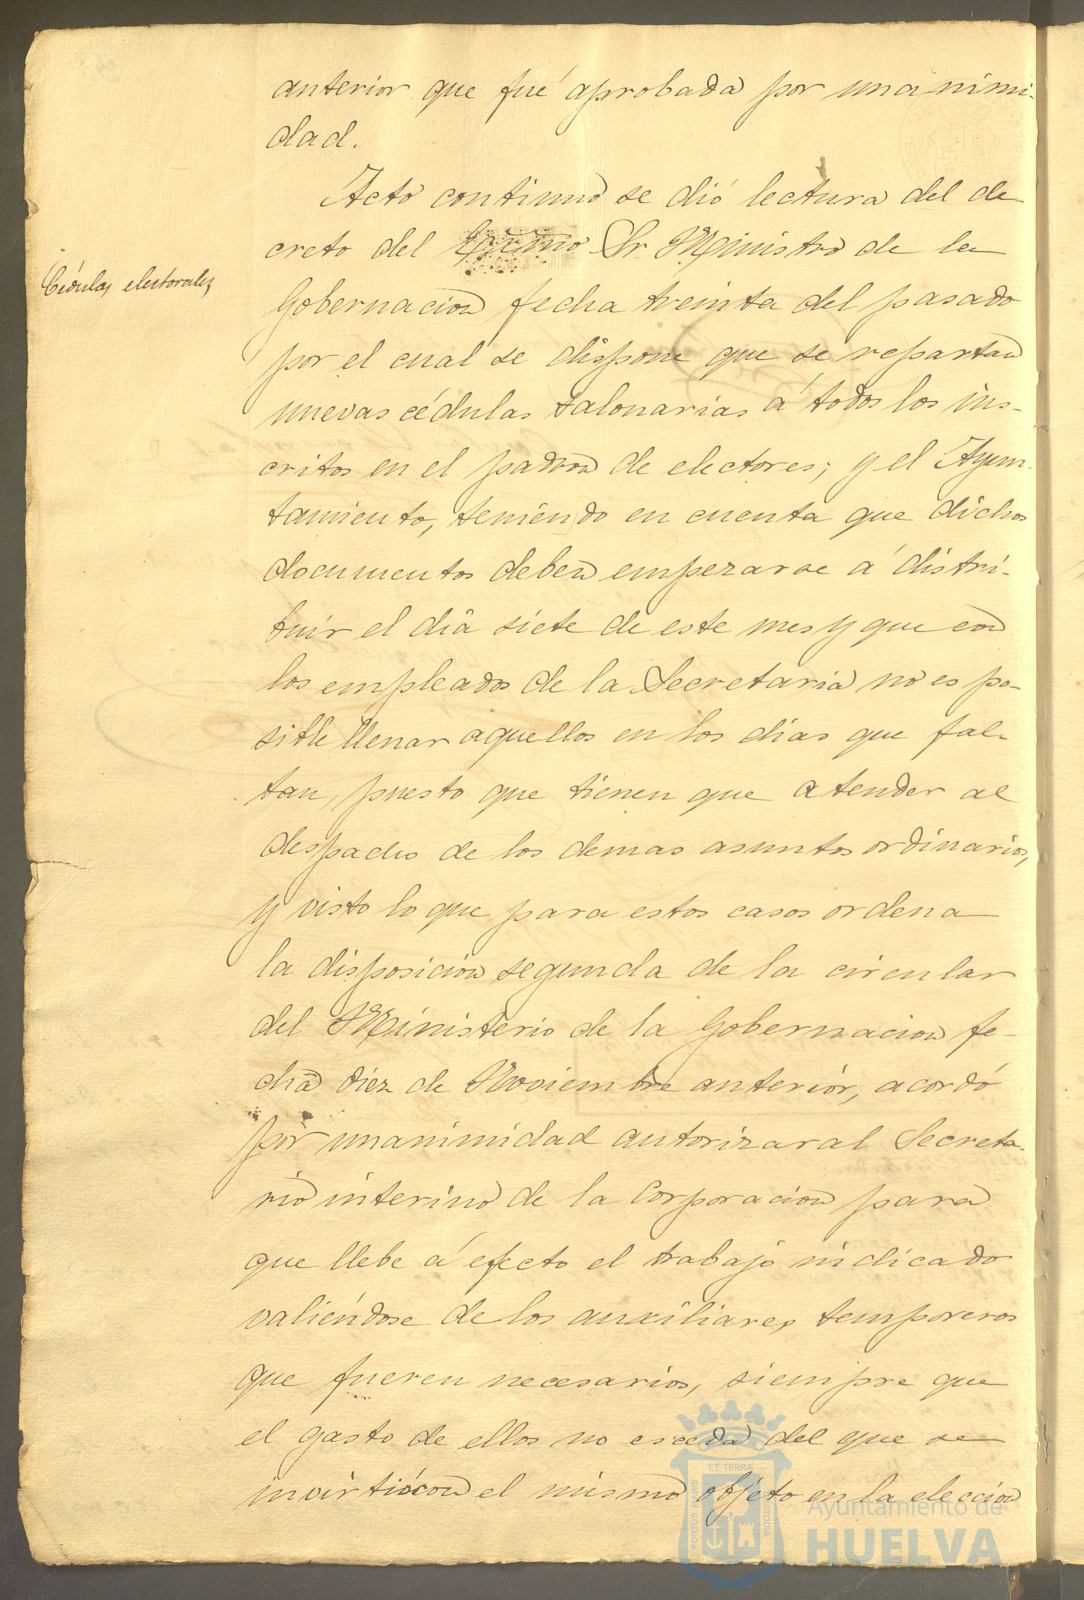 anterior que fué aprobada por unanimi-
dad.
Acto continuo se dió lectura del de-
creto del Excmo Sr. Ministro de la
Cédulas electorales
Gobernacion fecha treinta del pasado
por el cual se dispone que se repartan
nuevas cédulas talonarias á todos los ins-
critos en el padron de electores; y el Ayun-
tamiento, teniendo en cuenta que dichos
documentos deben empezarse á distri-
buir el dia siete de este mes y que con
los empleados de la Secretaria no es po-
sible llenar aquellos en los dias que fal-
tan, puesto que tienen que atender al
despacho de los demas asuntos ordinarios,
y visto lo que para estos casos ordena
la disposicion segunda de la circular
del Ministerio de la Gobernacion fe-
cha diez de Noviembre anterior, acordó
por unanimidad autorizar al Secreta-
rio interino de la Corporacion para
que llebe á efecto el trabajo indicado
valiéndose de los auxiliares temporeros
que fueren necesarios, siempre que
el gasto de ellos no esceda del que se
invirtió con el mismo objeto en la eleccion
ET TERRA
PORTUS MARIS
CUSTODIA
Ayuntamiento de
HUELVA